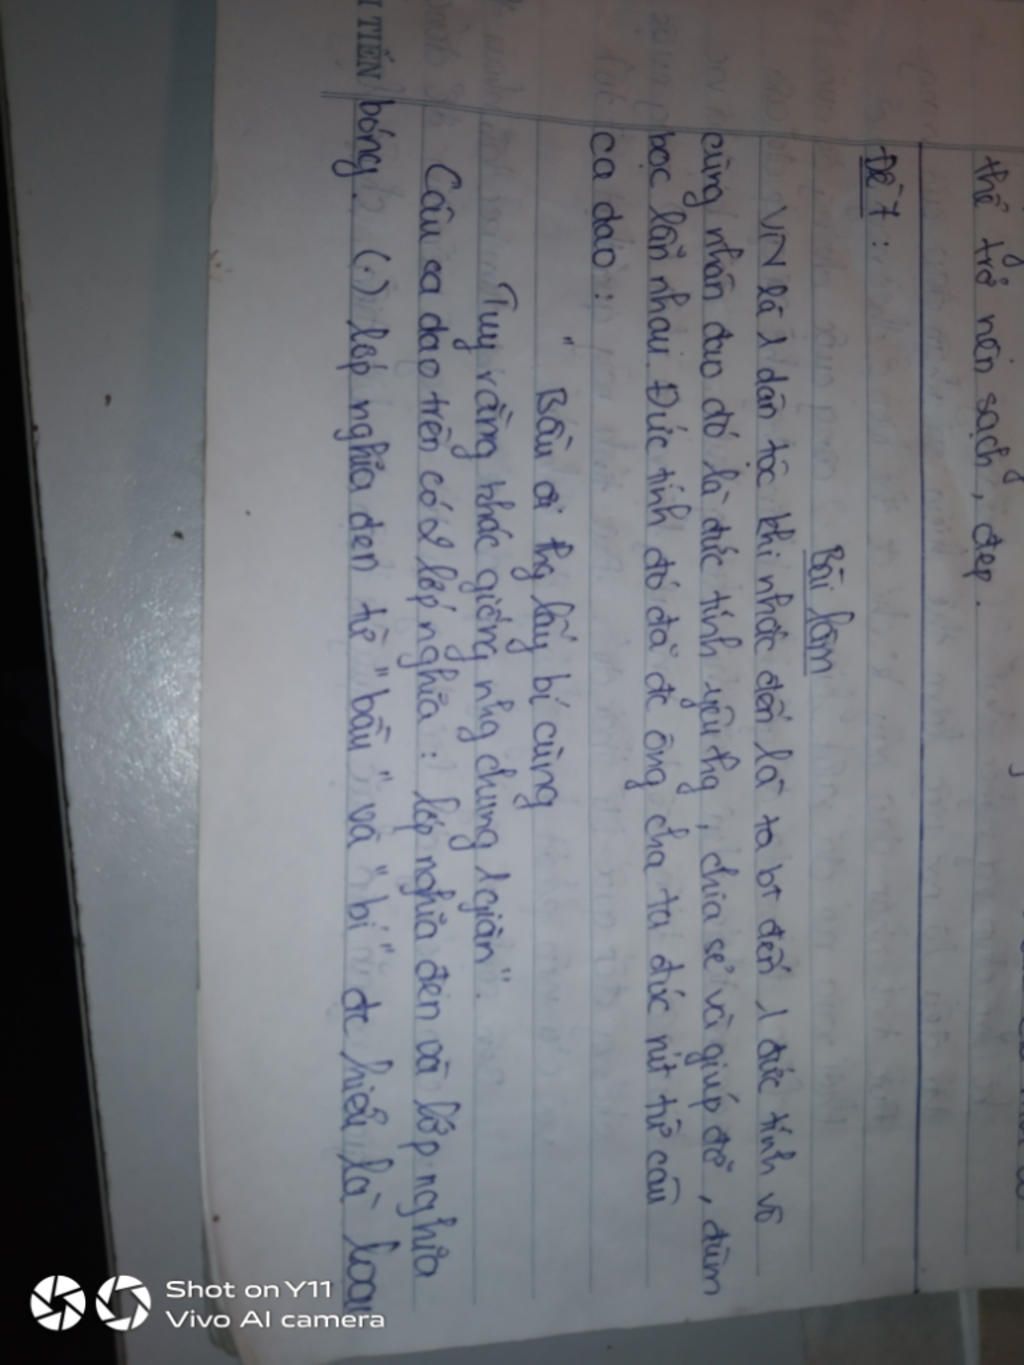 thể trở nên sạch, đẹp.
Đề 7:
Bài làm
VN là 1 dân tộc khi nhắc đến là ta bt đến 1 đức tính vô
cùng nhân đạo đó là đức tính yêu thg, chia sẻ và giúp đỡ, đùm
bọc lẫn nhau. Đức tính đó đã đc ông cha ta đúc rút từ câu
ca dao:
" Bầu ơi thg lấy bí cùng
Tuy rằng khác giống nhg chung 1 giàn".
Câu ca dao trên có 2 lớp nghĩa: lớp nghĩa đen và lớp nghĩa
bóng. (.) lớp nghĩa đen từ "bầu" và "bí" đc hiểu là loại
TIẾN
Shot on Y11
Vivo AI camera